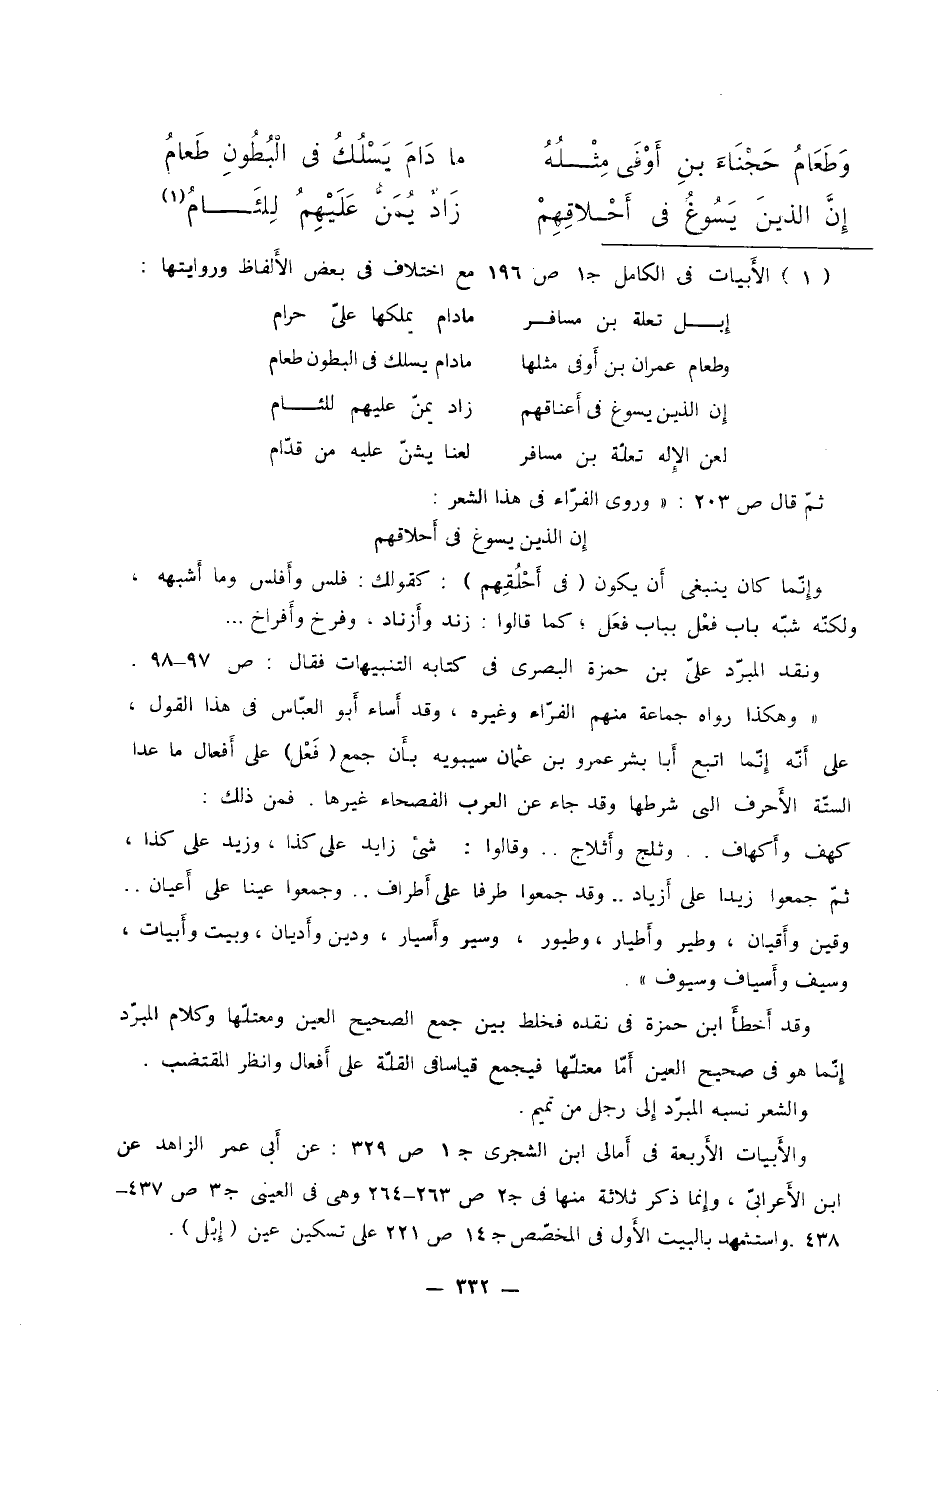 وَطَعَامُ حَجْنَاءَ بنِ أَوْفَى مِثْلُهُ ما دَامَ يَسْلُكُ فى الْبُطُونِ طَعامُ
إِنَّ الذينَ يَسُوغُ فى أَحْلاقِهِمْ زَادٌ يُمَنُّ عَلَيْهِمُ لِلثَامُ(١)
( ١ ) الأَبيات فى الكامل جـ١ ص ١٩٦ مع اختلاف فى بعض الأَلفاظ وروايتها :
إبل تعلة بن مسافر مادام يملكها علىّ حرام
وطعام عمران بن أَوفى مثلها مادام يسلك فى البطون طعام
إن الذين يسوغ فى أَعناقهم زاد يمنّ عليهم للئام
لعن الإله تعلّة بن مسافر لعنا يشنّ عليه من قدّام
ثمّ قال ص ٢٠٣ : « وروى الفرّاء فى هذا الشعر :
إن الذين يسوغ فى أَحلاقهم
وإنّما كان ينبغى أَن يكون ( فى أَحْلُقِهم ) : كقولك : فلس وأَفلس وما أَشبهه ،
ولكنّه شبّه باب فعْل بباب فعَل ؛ كما قالوا : زند وأَزناد ، وفرخ وأَفراخ ...
ونقد المبرّد علىّ بن حمزة البصرى فى كتابه التنبيهات فقال : ص ٩٧–٩٨ .
« وهكذا رواه جماعة منهم الفرّاء وغيره ، وقد أَساء أَبو العبّاس فى هذا القول ،
على أَنّه إنّما اتبع أَبا بشر عمرو بن عثمان سيبويه بأَن جمع ( فَعْل) على أَفعال ما عدا
الستّة الأَحرف التى شرطها وقد جاء عن العرب الفصحاء غيرها . فمن ذلك :
كهف وأَكهاف . . وثلج وأَثلاج .. وقالوا : شئ زايد على كذا ، وزيد على كذا ،
ثمّ جمعوا زيدا على أَزياد .. وقد جمعوا طرفا على أَطراف .. وجمعوا عينا على أَعيان ..
وقين وأَقيان ، وطير وأَطيار ، وطيور ، وسير وأَسيار ، ودين وأَديان ، وبيت وأَبيات ،
وسيف وأَسياف وسيوف » .
وقد أَخطأَ ابن حمزة فى نقده فخلط بين جمع الصحيح العين ومعتلّها وكلام المبرّد
إنّما هو فى صحيح العين أَمّا معتلّها فيجمع قياسا فى القلّة على أَفعال وانظر المقتضب .
والشعر نسبه المبرّد إلى رجل من تميم .
والأَبيات الأَربعة فى أَمالى ابن الشجرى جـ ١ ص ٣٢٩ : عن أَبي عمر الزاهد عن
ابن الأَعرابىّ ، وإنما ذكر ثلاثة منها فى جـ٢ ص ٢٦٣–٢٦٤ وهى فى العينى جـ٣ ص ٤٣٧–
٤٣٨ .واستشهد بالبيت الأَول فى المخصّص جـ ١٤ ص ٢٢١ على تسكين عين ( إبْل ) .
— ٣٣٢ —